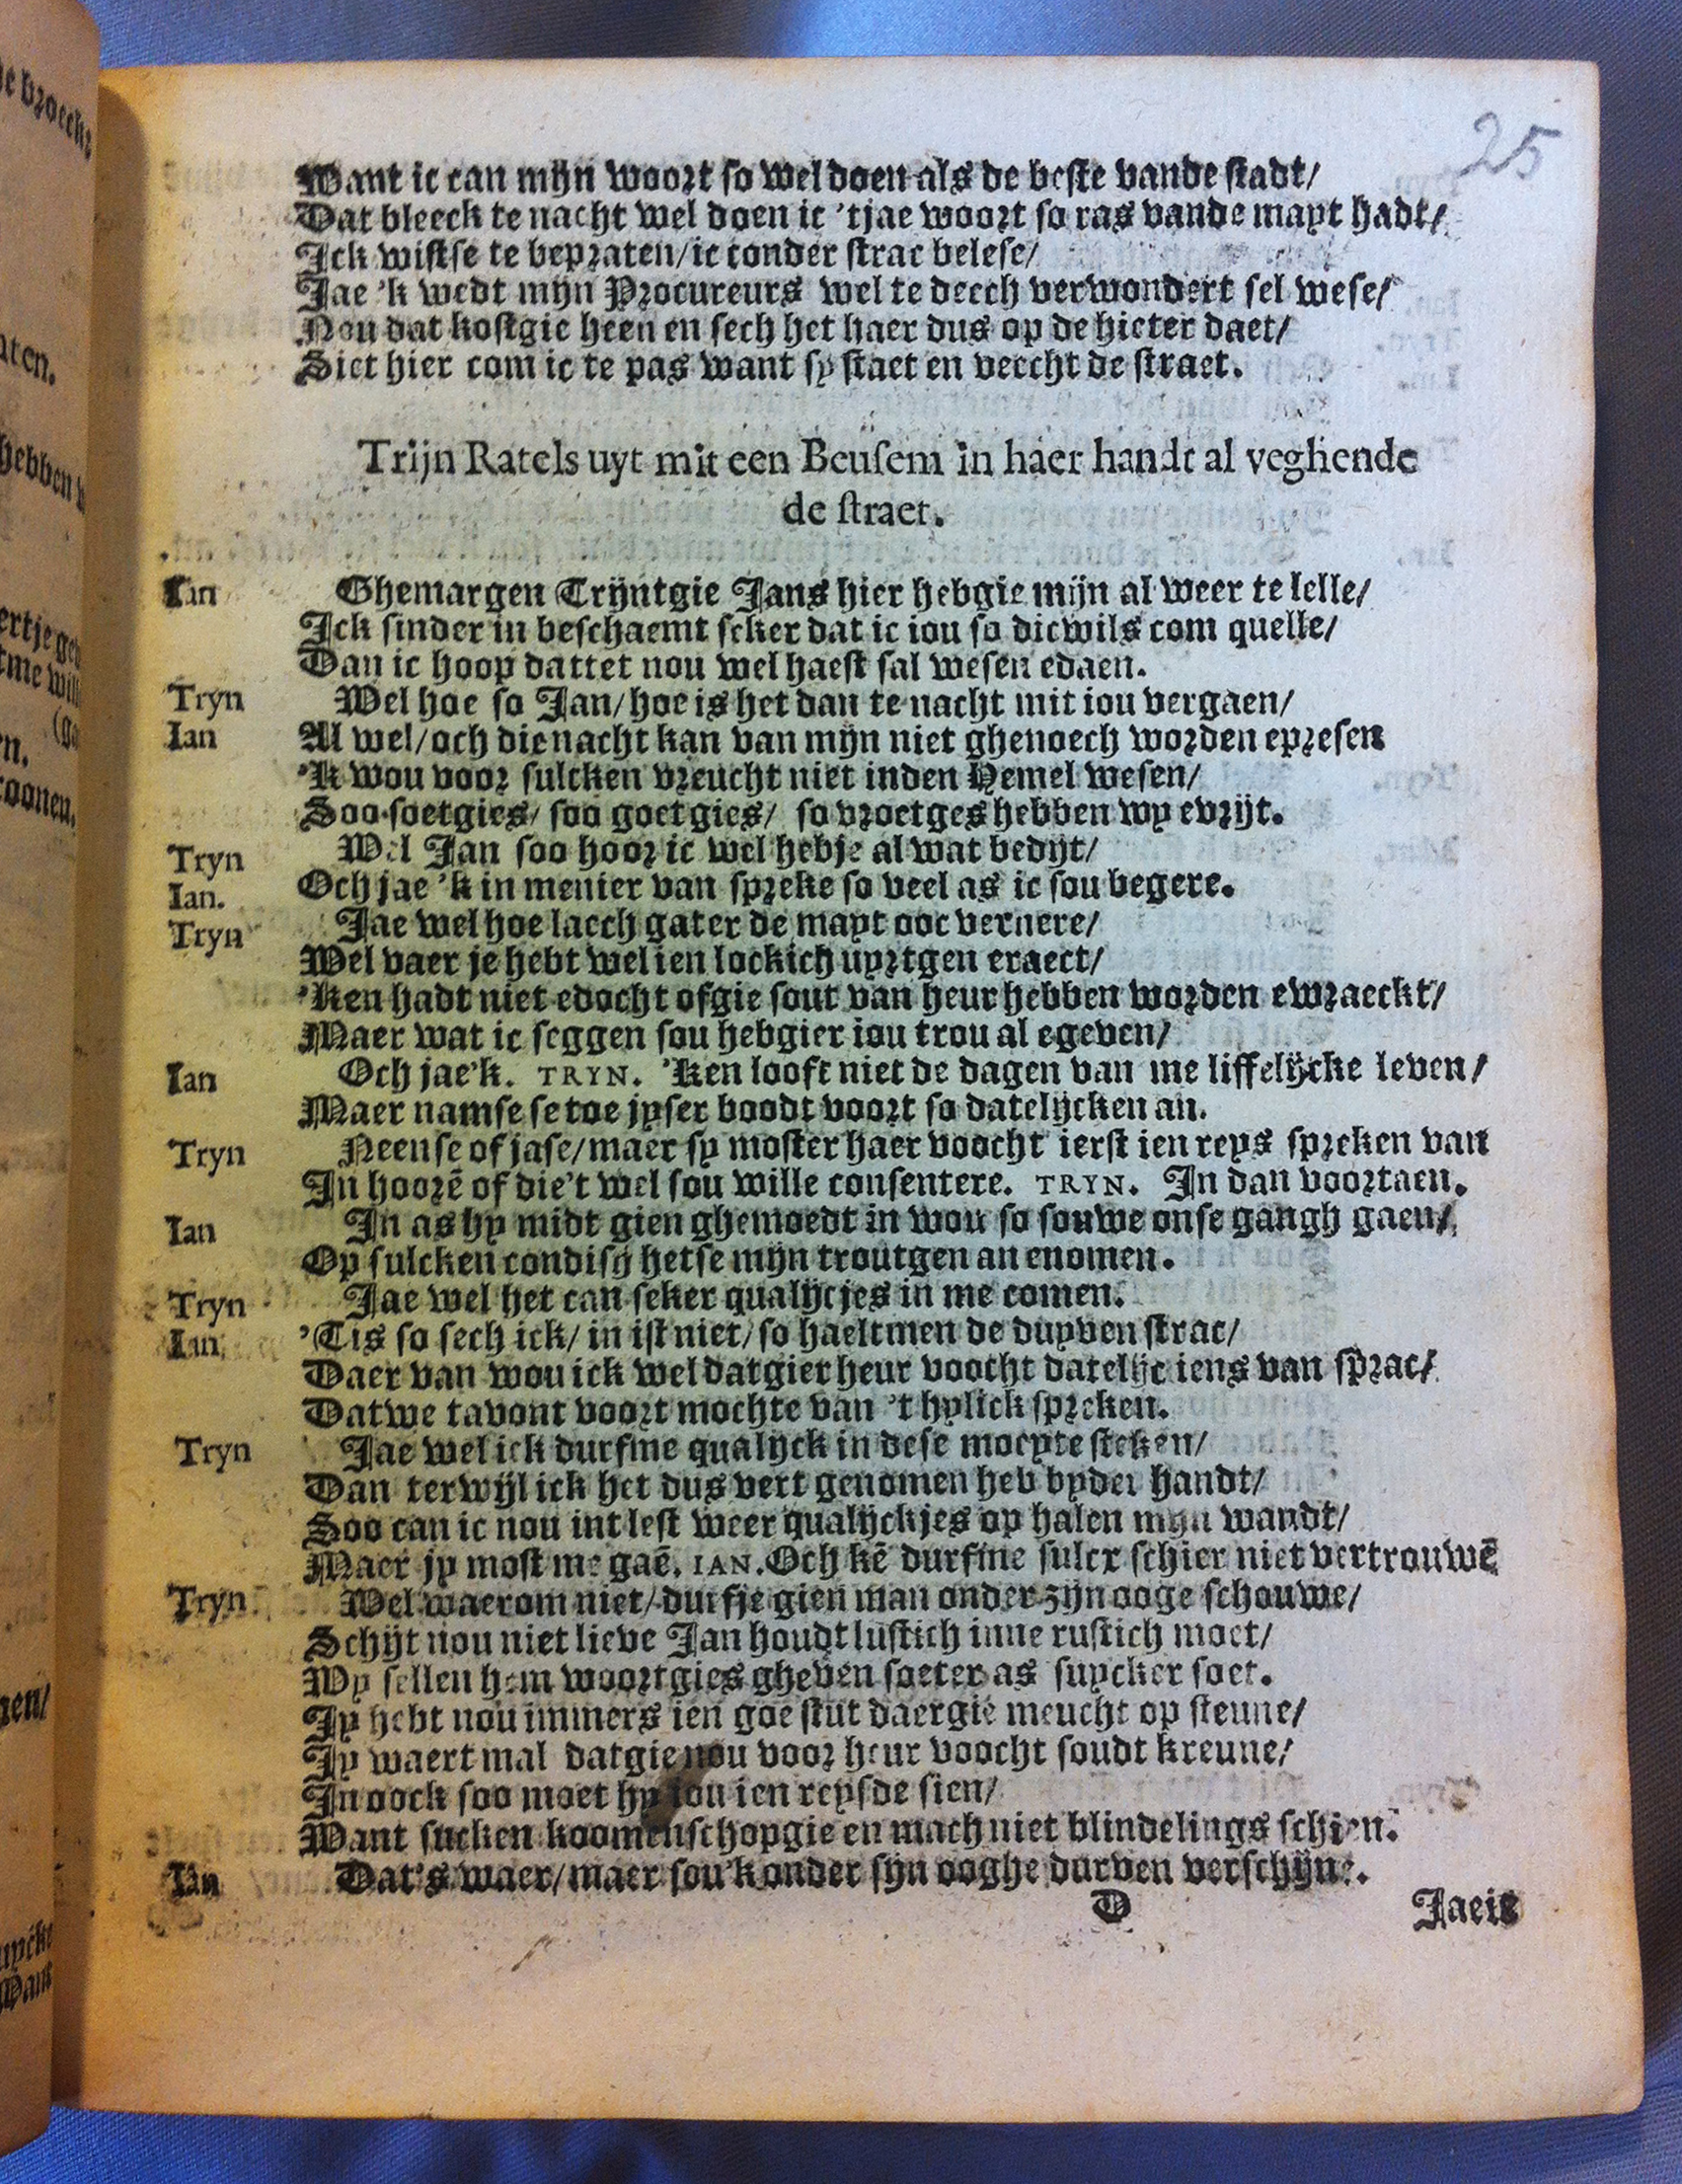 25
Want ic can mijn woort so wel doen als de beste vande stadt/
Dat bleeck te nacht wel doen ic 'tjae woort so ras vande mayt hadt/
Ick wistse te bepraten/ ic conder strac belese/
Jae 'k wedt mijn Procureurs wel te deech verwondert sel wese/
Nou dat kostgie heen en sech het haer dus op de hieter daet/
Siet hier com ic te pas want sy staet en veecht de straet.
Trijn Ratels uyt mit een Beusem in haer handt al veghende
de straet.
Ian Ghemargen Trijntgie Jans hier hebgie mijn al weer te lelle/
Ick sinder in beschaemt seker dat ic iou so dicwils com quelle/
Dan ic hoop dattet nou wel haest sal wesen edaen.
Tryn Wel hoe so Jan/ hoe is het dan te nacht mit iou vergaen/
Ian Al wel/ och die nacht kan van mijn niet ghenoech worden epresen
'K wou voor sulcken vreucht niet inden Hemel wesen/
Soo soetgies/ soo goetgies/ so vroetges hebben wy evrijt.
Tryn Wel Jan soo hoor ic wel hebje al wat bedijt/
Ian. Och jae 'k in menier van spreke so veel as ic sou begere.
Tryn Jae wel hoe laech gater de mayt ooc vernere/
Wel vaer je hebt wel ien lockich uyrtgen eraect/
'Ken hadt niet edocht ofgie sout van heur hebben worden ewraeckt/
Maer wat ic seggen sou hebgier iou trou al egeven/
Ian Och jae'k. TRYN. 'Ken looft niet de dagen van me liffelijcke leven/
Maer namse se toe jyser boodt voort so datelijcken an.
Tryn Neense of jase/ maer sy moster haer voocht ierst ien reys spreken van
In hoorē of die't wel sou wille consentere. TRYN. In dan voortaen.
Ian In as hy midt gien ghemoedt in wou so souwe onse gangh gaen/
Op sulcken condisy hetse mijn troutgen an enomen.
Tryn Jae wel het can seker qualijcjes in me comen.
Ian 'Tis so sech ick/ in ist niet/ so haeltmen de duyven strac/
Daer van wou ick wel datgier heur voocht datelijc iens van sprac/
Datwe tavont voort mochte van 't hylick spreken.
Tryn Jae wel ick durfme qualijck in dese moeyte steken/
Dan terwijl ick het dus vert genomen heb byder handt/
Soo can ic nou int lest weer qualijckjes op halen mijn wandt/
Maer jy most me gaē. IAN. Och kē durfme sulcx schier niet vertrouwē
Tryn Wel waerom niet/ durfje gien man onder zijn ooge schouwe/
Schijt nou niet lieve Jan houdt lustich inne rustich moet/
Wy sellen hem woortgies gheven soeter as suycker soet.
Jy hebt nou immers ien goe stut daergie meucht op steune/
Jy waert mal datgie nou voor heur voocht soudt kreune/
In oock soo moet hy iou ien reysde sien/
Want sucken koomenschopgie en mach niet blindelings schien.
Ian Dat's waer/ maer sou'k onder sijn ooghe durven verschijne.
D Jaeic